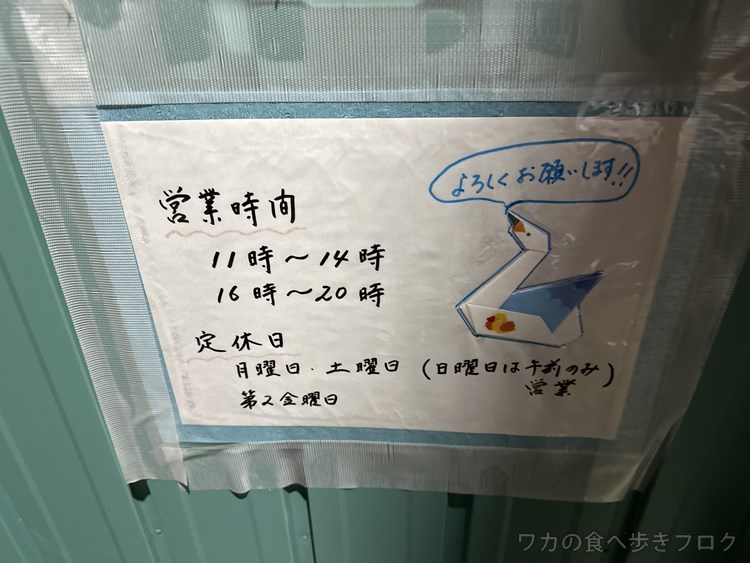 よろしくお願いします!!
営業時間
11時〜14時
16時〜20時
定休日
月曜日.土曜日(日曜日は午前のみ)
営業
第2金曜日
ワカの食べ歩きブログ